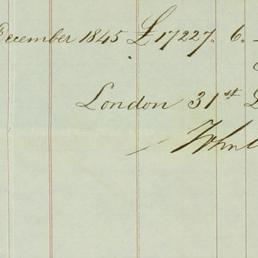 December 1845 £17227. 6. -
London 31st D
John